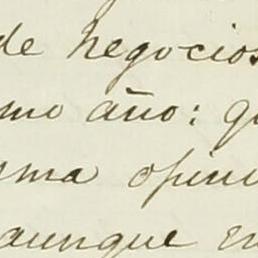 de negocios
mo año: q
sma opini
aunque en